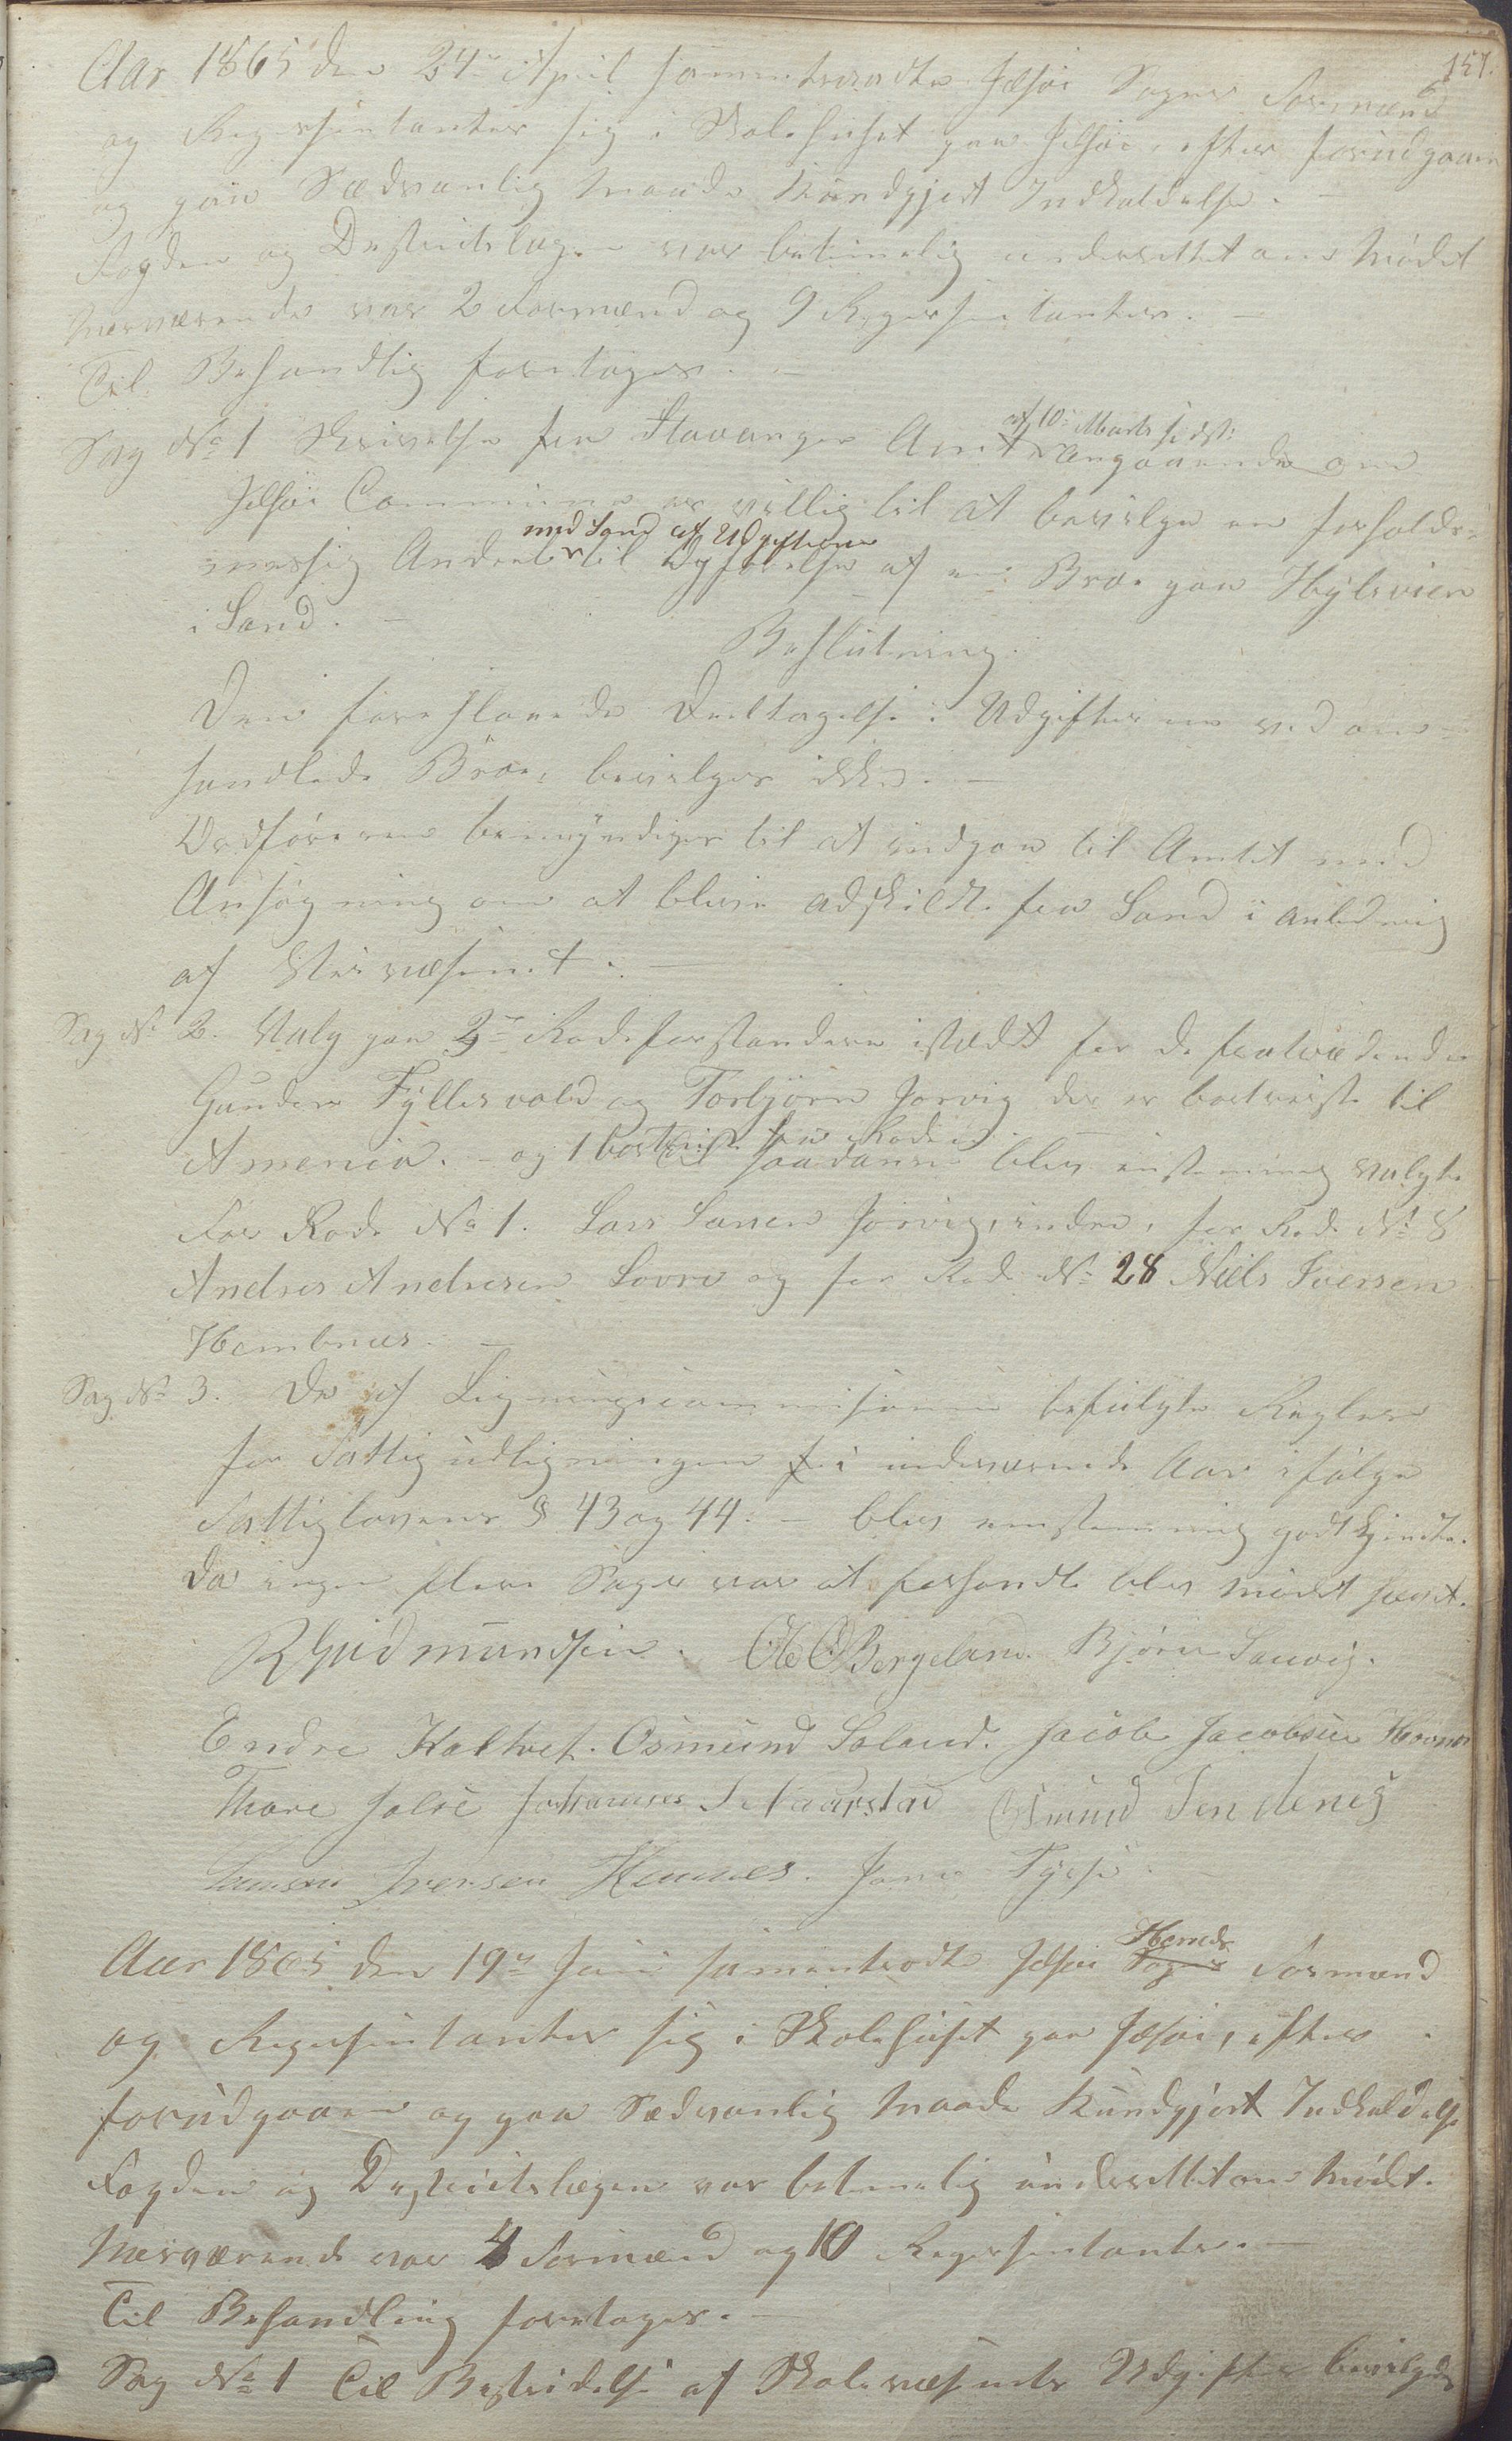 157.
Aar 1865 den 24de April sammentraadte Jelsøi Sogns Formænd
og Repræsentanter sig i Skolehuset paa Jelsøi, efter forudgaaen
og paa Sædvanlig Maade Kundgjort Indkaldelse. -
Fogden og Destrictslægen var betimelig underrettet om Mødet
Nærværende var 2 Formænd og 9 Repræsentanter. -
Til Behandlig foretoges. -
Sag No 1 Skrivelse fra Stavanger Amt af 10de Marts sidst: angaaende om
Jelsøi Commune er villig til at bevilge en forholds-
messig Andeel med Sand af Udgifterne til Opførelse af en Broe paa Hylsveien
i Sand. -
Beslutning.
Den foreslaaede Deeltagelse i Udgifterne ved om-
handlede Broe, bevilges ikke. -
Ordføreren bemyndiges til at indgaae til Amtet med
Ansøgning om at blive adskildte fra Sand i anledning
af Veivæsenet. -
Sag No 2. Valg paa 3de Rodeforstandere istædet for de fratrædende
Gunder Fyllesvold og Torbjørn Jorvig der er bortreiste til
Amerika. - og 1 bortreist fra Roden. - Til saadanne blev enstemmig valgte
For Rode No 1. Lars Larsen Jorvig, indre, for Rode No 8
Andres Andresen Lovre og for Rode No 28 Niels Iversen
Hembnæs. -
Sag No 3. De af Ligningscommisionen befulgte Regler
for Fattigudligningen i indeværende Aar ifølge
Fattiglovens § 43 og 44. - blev enstemmig godtkjendte.
Da ingen flere Sager var at forhandle blev Mødet hævet.
R Gudmundsen. Ole O Bergeland. Bjørn Sauvig.
Endre Kaltvet. Osmund Soland. Jacob Jacobsen
Thore Jalsè Johannes Naarstad Osmund
Iversen Hemnes. Jone
Aar 1865 den 19de Juni sammentraadte Jelsøi Herreds Sogns Formænd
og Repræsentanter sig i Skolehuset paa Jelsøi, efter
forudgaaen og paa Sædvanlig Maade Kundgjort Indkaldelse
Fogden og Destrictslægen var betimelig underrettet om Mødet.
Nærværende var 4 Formænd og 10 Repræsentanter. -
Til Behandling foretoges. -
Sag No 1 Til Bestridelse af Skolevæsenets Udgifter bevilgedes